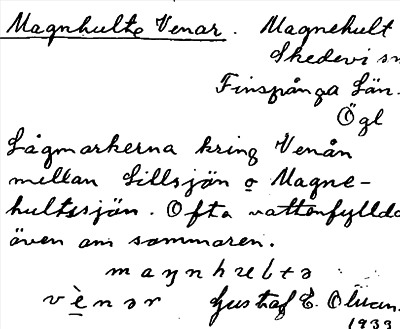 Magnhults Venar. Magnehult
Skedevi sn
Finspånga Län.
Ögl
Lågmarkerna kring Venån
mellan Lillsjön o Magne-
hultssjön. Ofta vattenfyllda
även om sommaren.
vènər Gustaf E.
1933